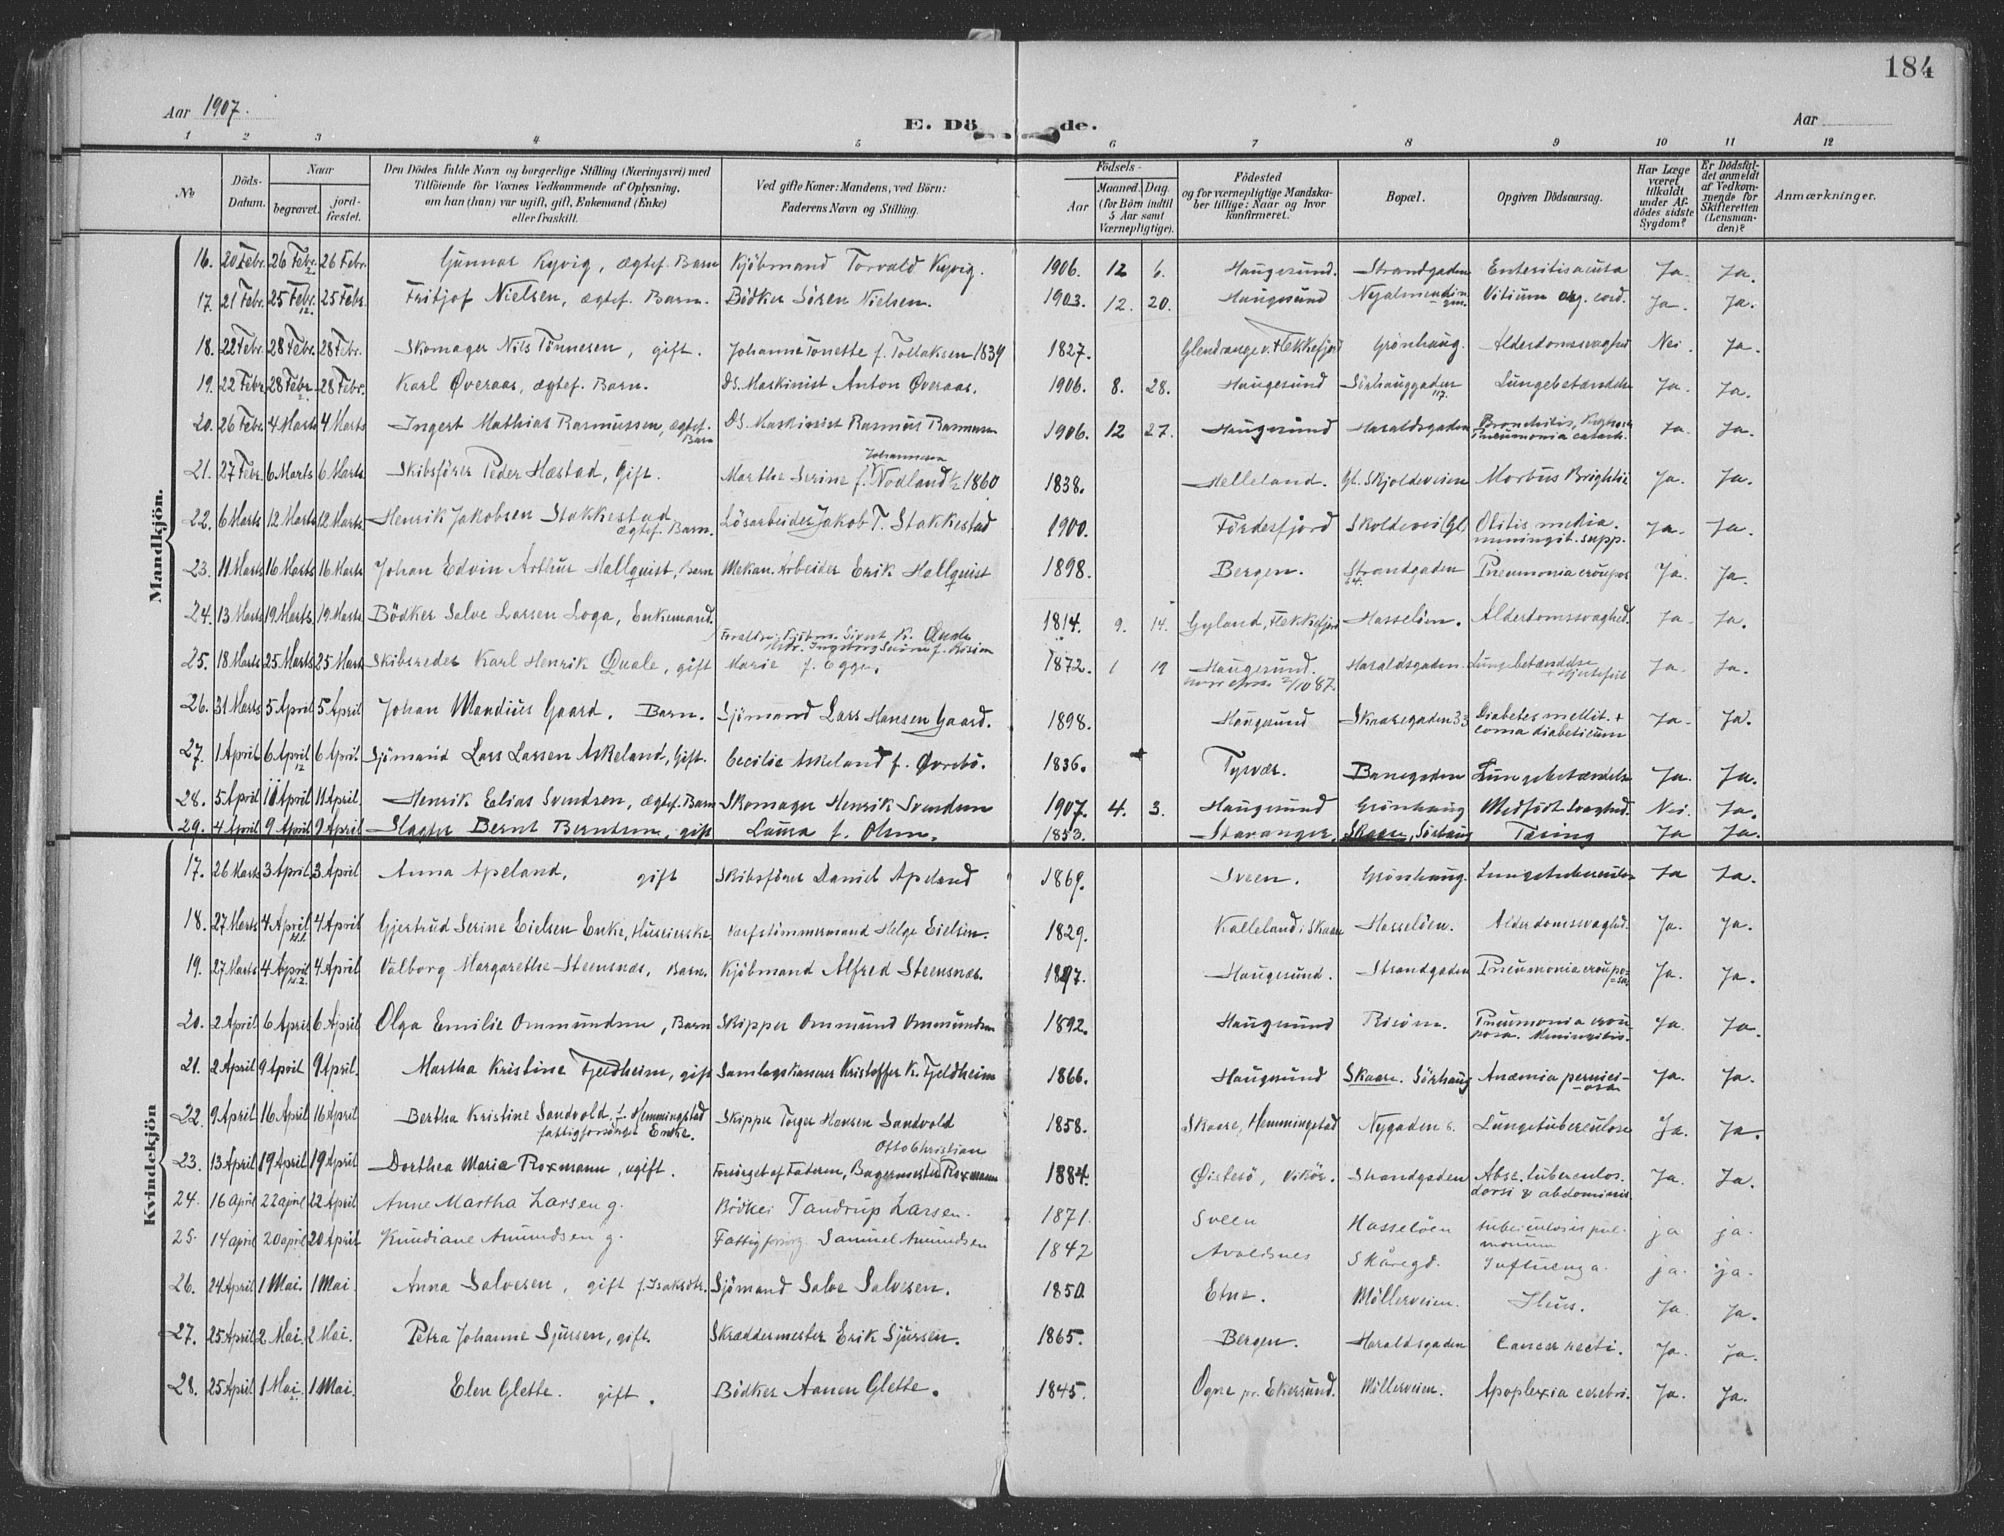 184
Aar 1907.
E. Dö de.
Aar
1 2 3 4 5 6 7 8 9 10 11 12
No
Döds-Datum.
Naar
begravet.
jord-fæstet.
Den Dödes fulde Navn og borgerlige Stilling (Næringsvei) med
Tilföiende for Voxnes Vedkommende af Oplysning,
om han (hun) var ugift, gift, Enkemand (Enke)
eller fraskilt.
Ved gifte Koner: Mandens, ved Börn:
Faderens Navn og Stilling.
Födsels-
Aar
Maaned. Dag.
(for Börn indtil
5 Aar samt
Værnepligtige).
Födested
og for værnepligtige Mandska-
ber tillige: Naar og hvor
konfirmeret.
Bopæl.
Opgiven Dödsaarsag.
Har Læge
været
tilkaldt
under Af-
dödes sidste
Sygdom?
Er Dödsfal-
det anmeldt
af Vedkom-
mende for
Skifteretten
(Lensman-
den)?
Anmærkninger.
Mandkjön.
16. 20 Febr. 26 Febr. 26 Febr. Gunnar Kyvig, ægtef. Barn Kjöbmand Torvald Kyvig. 1906. 12 6. Haugesund. Strandgaden Enteritis acuta Ja. Ja.
17. 21 Febr. 25 Febr. 25 Febr. Fritjof Nielsen, ægtef. Barn. Bödker Sören Nielsen. 1903. 12. 20. Haugesund Vitium org. cord. Ja. Ja.
18. 22 Febr. 28 Febr. 28 Febr. Skomager Nils Tönnesen, gift. Johanne Tonette f. Tollaksen 1839 1827. Flekkefjord Grönhaug. Alderdomssvaghed Nei. Ja.
19. 22 Febr. 28 Febr. 28 Febr. Karl Øveraas, ægtef. Barn. DS. Maskinist Anton Øveraas. 1906. 8. 28. Haugesund Sörhauggaden 117. Lungebetændelse Ja. Ja.
20. 26 Febr. 4 Marts 4 Marts Ingert Mathias Rasmussen, ægtef. Barn DS. Maskinist Rasmus Rasmussen 1906. 12 27. Haugesund Haraldsgaden Bronchitis, Pneumonia catarrh. Ja. Ja.
21. 27 Febr. 6 Marts 6 Marts Skibsförer Peder Hæstad, Gift. Marthe Serine f. Johannesen Nodland 1860 1838. Helleland. Gl. Skjoldeveien Morbus Brightii Ja. Ja.
22. 6 Marts 12 Marts 12 Marts Henrik Jakobsen Stakkestad ægtef. Barn. Lösarbeider Jakob T. Stakkestad 1900. Fördesfjord Skoldevei (Gl Otitis media. meningit. supp. Ja. Ja.
23. 11 Marts 16 Marts 16 Marts Johan Edvin Arthur Hallquist, Barn Mekan. Arbeider Erik Hallquist 1898. Bergen. Strandgaden 64. Pneumonia croupos Ja. Ja.
24. 13 Marts 19 Marts 19 Marts Bödker Salve Larsen Loga, Enkemand. 1814. 9. 14. Gyland, Flekkefjord Hasselöen. Alderdomssvaghed. Ja. Ja.
25. 18 Marts 25 Marts 25 Marts Skibsreder Karl Henrik Quale, gift Marie f. Egge. 1872. 1 19 Haugesund. 2/10 87. Haraldsgaden. Lungebetændelse + Hjertefeil Ja. Ja.
26. 31 Marts 5 April 5 April Johan Mandius Gaard. Barn. Sjömand Lars Hansen Gaard. 1898. Haugesund Skaaregaden 33 Diabetes mellit. + coma diabeticum Ja. Ja.
27. 1 April 6 April 6 April Sjömand Lars Larsen Askeland, Gift. Cecilie Askeland f. Øvrebö. 1836. Tysvær. Banegaden Lungebetændelse Ja. Ja.
28. 5 April 11 April 11 April Henrik Elias Svendsen, ægtef. Barn Skomager Henrik Svendsen 1907. 4. 3. Haugesund Grönhaug Medfödt Svaghed. Nei. Ja.
29. 4 April 9 April 9 April Slagter Bernt Berntsen, gift Laura f. Olsen. 1853. Stavanger. Skaare, Sörhaug Tæring Ja Ja.
Kvindekjön
17. 26 Marts 3 April 3 April Anna Apeland, gift Skibsförer Daniel Apeland 1869. Sveen. Grönhaug. Lungetuberculos Ja Ja.
18. 27 Marts 4 April 4 April Gjertrud Serine Eielsen Enke, Huseierske. Værfstömmermand Helge Eielsen. 1829. Kalleland i Skaare Hasselöen. Alderdomssvaghed. Ja. Ja.
19. 27 Marts 4 April 4 April Valborg Margarethe Steensnæs. Barn. Kjöbmand Alfred Steensnæs. 1897. Haugesund. Strandgaden Pneumonia croupo-sa Ja. Ja.
20. 2 April 6 April 6 April Olga Emilie Ommundsen, Barn Skipper Ommund Ommundsen 1892. Haugesund Risöen. Pneumonia crou-posa. Meningitis. Ja. Ja.
21. 2 April 9 April 9 April. Martha Kristine Fjeldheim, gift Samlagskasserer Kristoffer K. Fjeldheim 1866. Haugesund Skaare. Sörhaug Anæmia pernici-osa Ja. Ja.
22. 9 April 16 April 16 April Bertha Kristine Sandvold f. Hemmingstad fattigforsörget Enke. Skipper Torger Hansen Sandvold 1858. Skaare, Hemmingstad Nygaden 6. Lungetuberculose Ja. Ja.
23. 13 April 19 April 19 April Dorthea Maria Roxmann, ugift. Forsörget af Faderen, Bagermester Otto Christian Roxmann 1884. Øistesö, Vikör. Strandgaden Absc. tuberculos. dorsi & abdominis Ja. Ja.
24. 16 april 22 april 22 April Anne Martha Larsen g. Bödker Tandrup Larsen. 1871. Sveen Hasselöen tuberculosis pul-monum ja ja.
25. 14 april 20 april 20 April Knudiane Amundsen g. Fattigforsörg. Samuel Amundsen 1847 Avaldsnes Skåregd. Influenza. ja. ja.
26. 24 April 1 Mai. 1 Mai. Anna Salvesen, gift f. Isaksdtr. Sjömand Salve Salvesen. 1850. Etne. Möllerveien. Ileus. Ja. Ja.
27. 25 April 2 Mai. 2 Mai. Petra Johanne Sjursen, gift. Skræddermester Erik Sjursen. 1865. Bergen. Haraldsgaden Cancer recti. Ja. Ja.
28. 25 April 1 Mai. 1 Mai. Elen Glette. gift. Bödker Aanen Glette. 1845. Ogne pr. Ekersund. Möllerveien. Apoplexia cerebri. Ja. Ja.